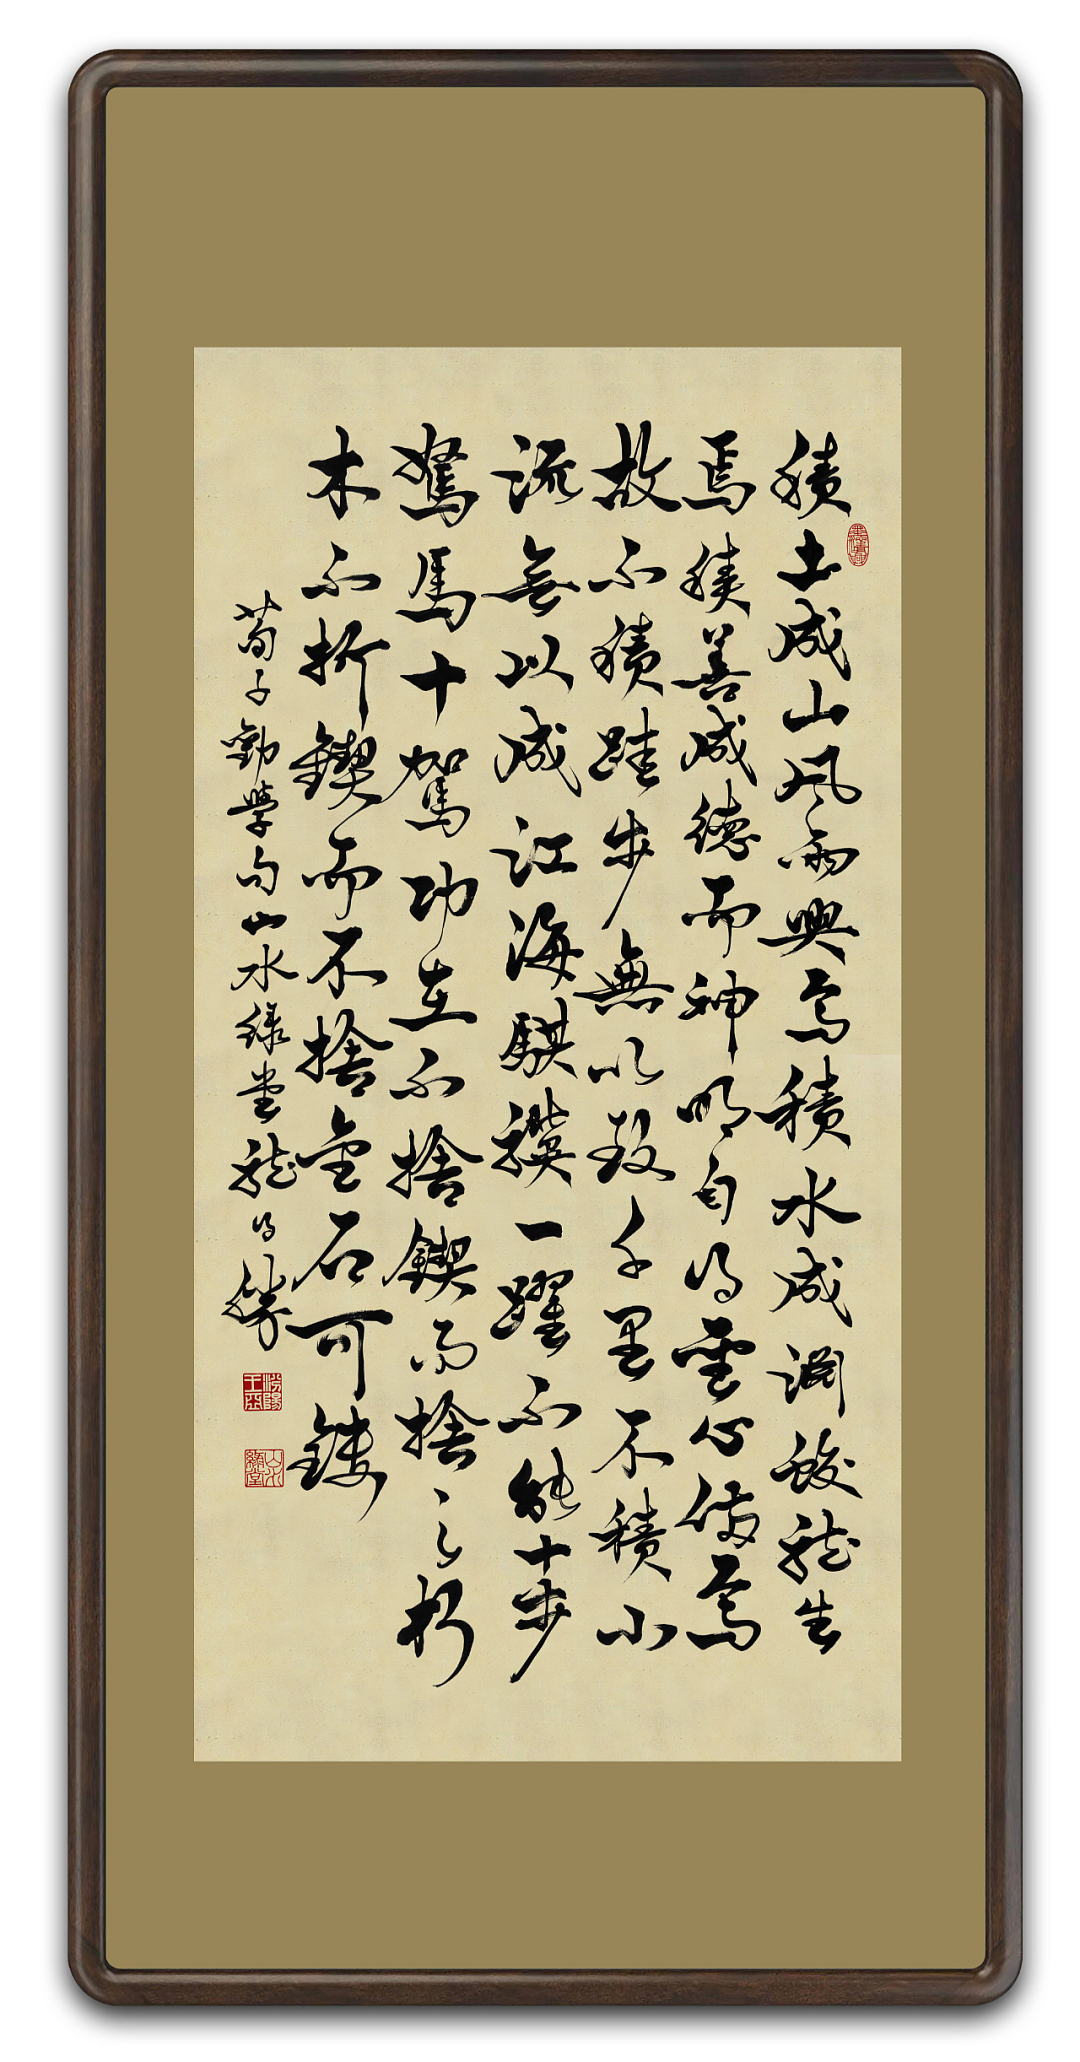 積土成山風雨興焉積水成淵蛟龍生
焉積善成德而神明自得聖心備焉
故不積跬步無以致千里不積小
流無以成江海騏驥一躍不能十步
駑馬十駕功在不捨鍥而捨之朽
木不折鍥而不捨金石可鏤
荀子勸學句山水緑堂龍得勝